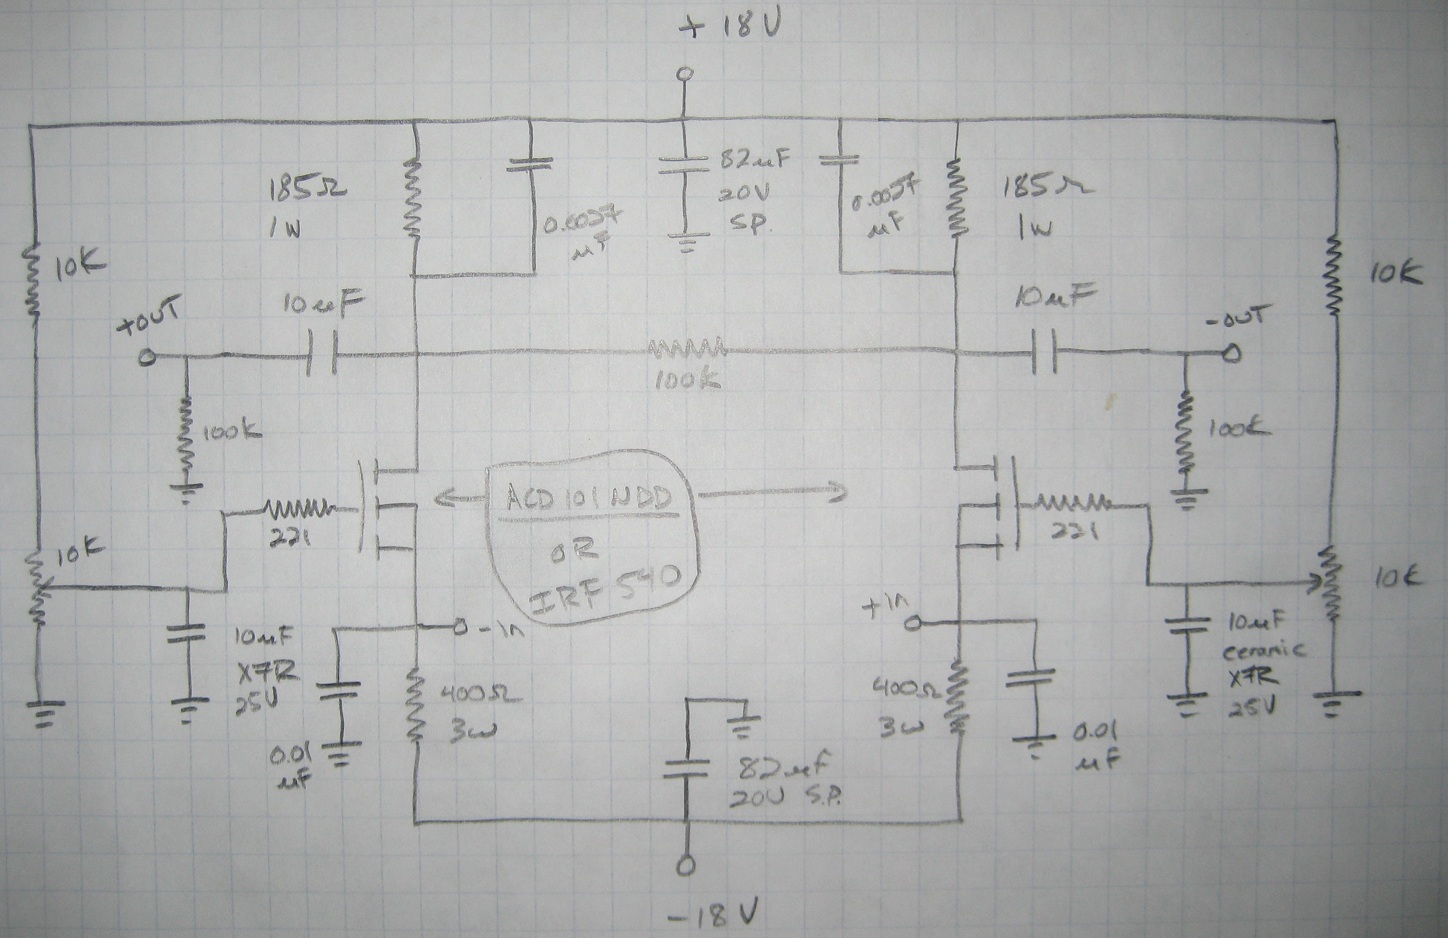 + 18V
185Ω
1W
82uF
20V
S.P.
185Ω
1W
0.0037
µF
0.0037
µF
10K
10K
10uF
10uF
+OUT
-OUT
100K
100K
100K
ACD101NDD
OR
IRF 540
221
221
10K
10K
-in
+in
10uF
X7R
25V
10uF
ceramic
X7R
25V
400Ω
3W
400Ω
3W
0.01
µF
0.01
µF
82uF
20V S.P.
-18V